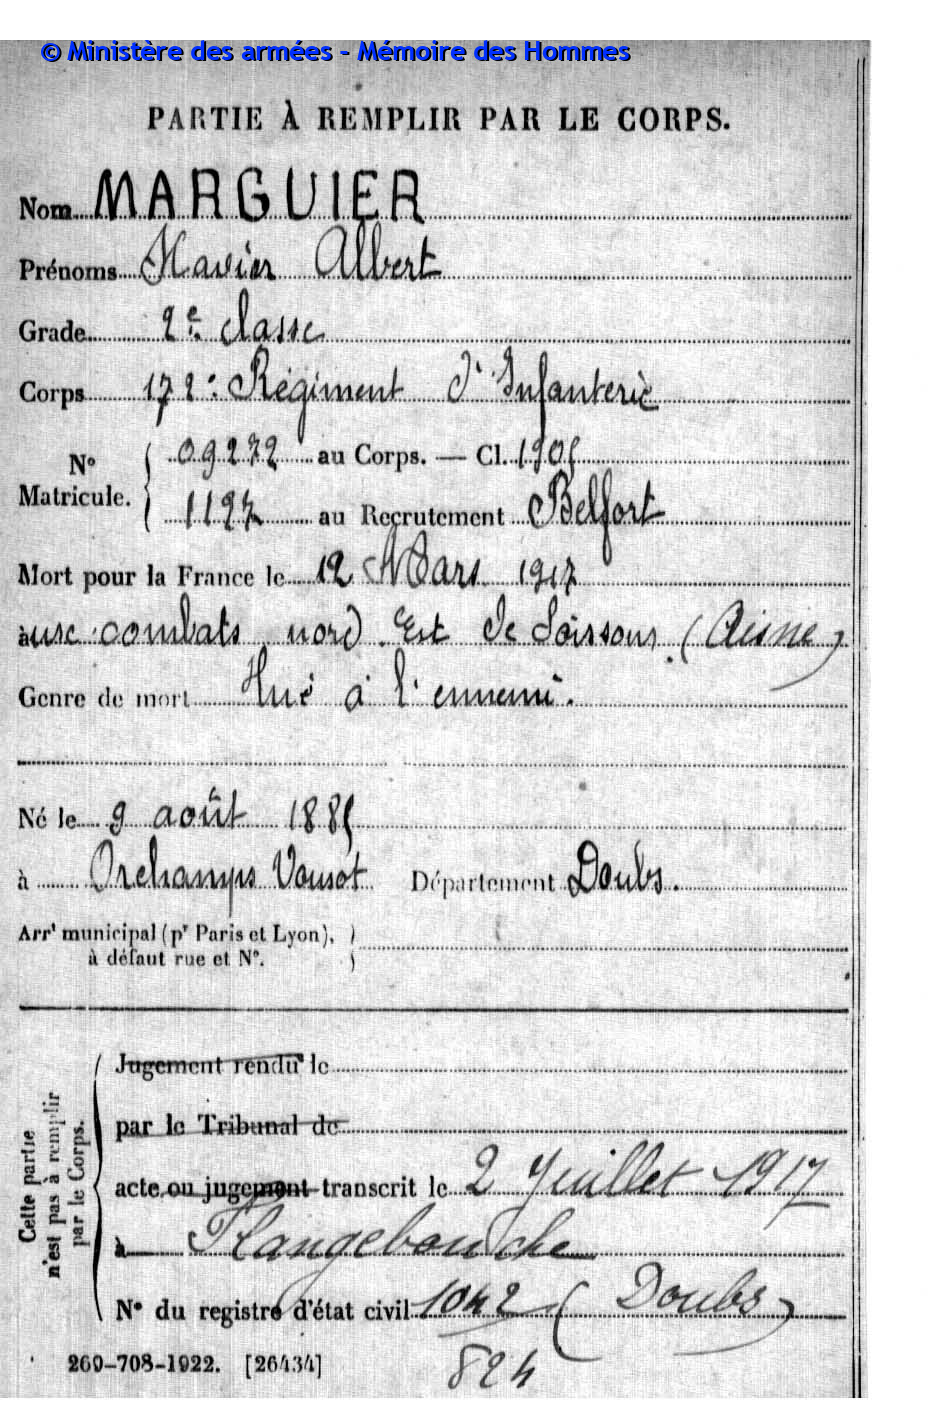 © Ministère des armées - Mémoire des Hommes
PARTIE À REMPLIR PAR LE CORPS.
Nom MARGUIER
Prénoms Xavier Albert
Grade 2e classe
Corps 172e Régiment d'Infanterie
N° Matricule. 09272 au Corps. — Cl. 1905
1197 au Recrutement Belfort
Mort pour la France le 12 Mars 1917
à aux combats nord Est de Soissons (Aisne)
Genre de mort Tué à l'ennemi.
Né le 9 août 1885
à Orchamps Vennes Département Doubs.
Arrt municipal (pr Paris et Lyon),
à défaut rue et N°.
Cette partie n'est pas à remplir par le Corps.
Jugement rendu le
par le Tribunal de
acte ou jugement transcrit le 2 Juillet 1917
à Flangebouche
N° du registre d'état civil 1042 (Doubs)
260-708-1922. [26434]
824